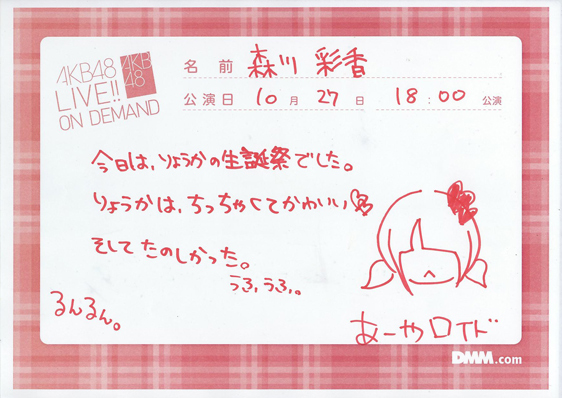 AKB48
LIVE!!
ON DEMAND
AKB
48
名 前 森川 彩香
公演日 10 月 27 日 18:00 公演
今日は、りょうかの生誕祭でした。
りょうかは、ちっちゃくてかわいい
そして たのしかった。
うふ、うふ。
るんるん。
あーやロイド
DMM.com